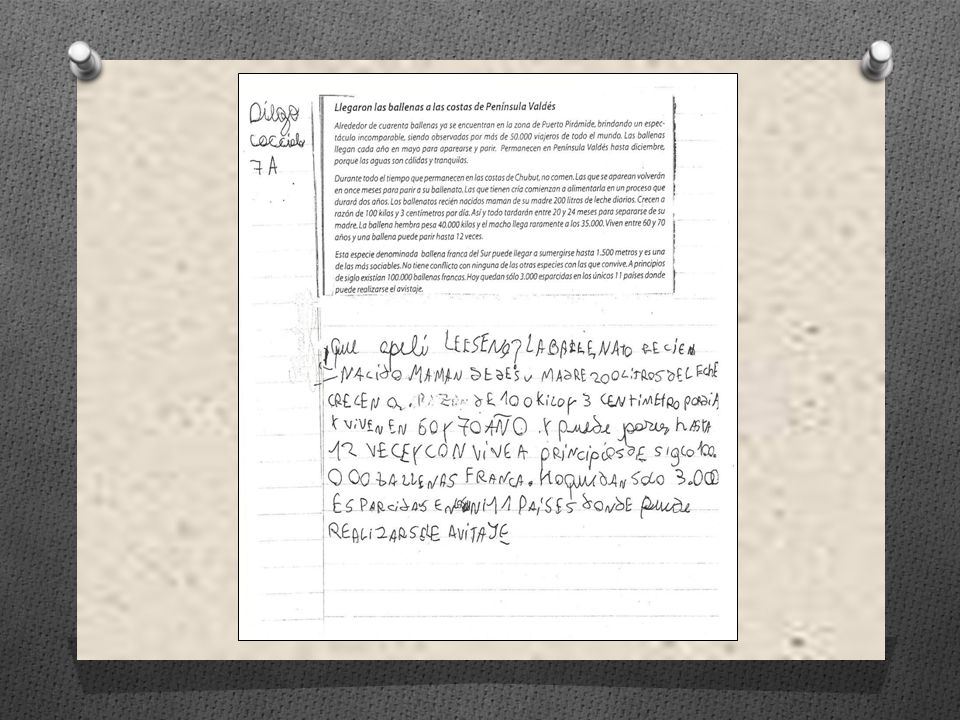 Diego
7 A
Llegaron las ballenas a las costas de Península Valdés
Alrededor de cuarenta ballenas ya se encuentran en la zona de Puerto Pirámide, brindando un espec-
táculo incomparable, siendo observadas por más de 50.000 viajeros de todo el mundo. Las ballenas
llegan cada año en mayo para aparearse y parir. Permanecen en Península Valdés hasta diciembre,
porque las aguas son cálidas y tranquilas.
Durante todo el tiempo que permanecen en las costas de Chubut, no comen. Las que se aparean volverán
en once meses para parir a su ballenato. Las que tienen cría comienzan a alimentarla en un proceso que
durará dos años. Los ballenatos recién nacidos maman de su madre 200 litros de leche diarios. Crecen a
razón de 100 kilos y 3 centímetros por día. Así y todo tardarán entre 20 y 24 meses para separarse de su
madre. La ballena hembra pesa 40.000 kilos y el macho llega raramente a los 35.000. Viven entre 60 y 70
años y una ballena puede parir hasta 12 veces.
Esta especie denominada ballena franca del Sur puede llegar a sumergirse hasta 1.500 metros y es una
de las más sociables. No tiene conflicto con ninguna de las otras especies con las que convive. A principios
de siglo existían 100.000 ballenas francas. Hoy quedan sólo 3.000 esparcidas en los únicos 11 países donde
puede realizarse el avistaje.
que LA BALLENATO RECIEN
NACIDO MAMAN DE DESU MADRE 200 LITROS DEL ECHE
CRECEN a. RAZON DE 100 KILOS y 3 CENTIMETRO PORDIA
Y VIVEN EN 60 y 70 AÑO. Y puede parir hASTA
12 VECES y CON VIVE A PRINCIPIOS DE SIGLO 100.
000 BALLENAS FRANCA. HOQUEDAN SOLO 3.000
ESPARCIDAS EN 11 PAÍSES DONDE puede
REALIZARSE AVITAJE